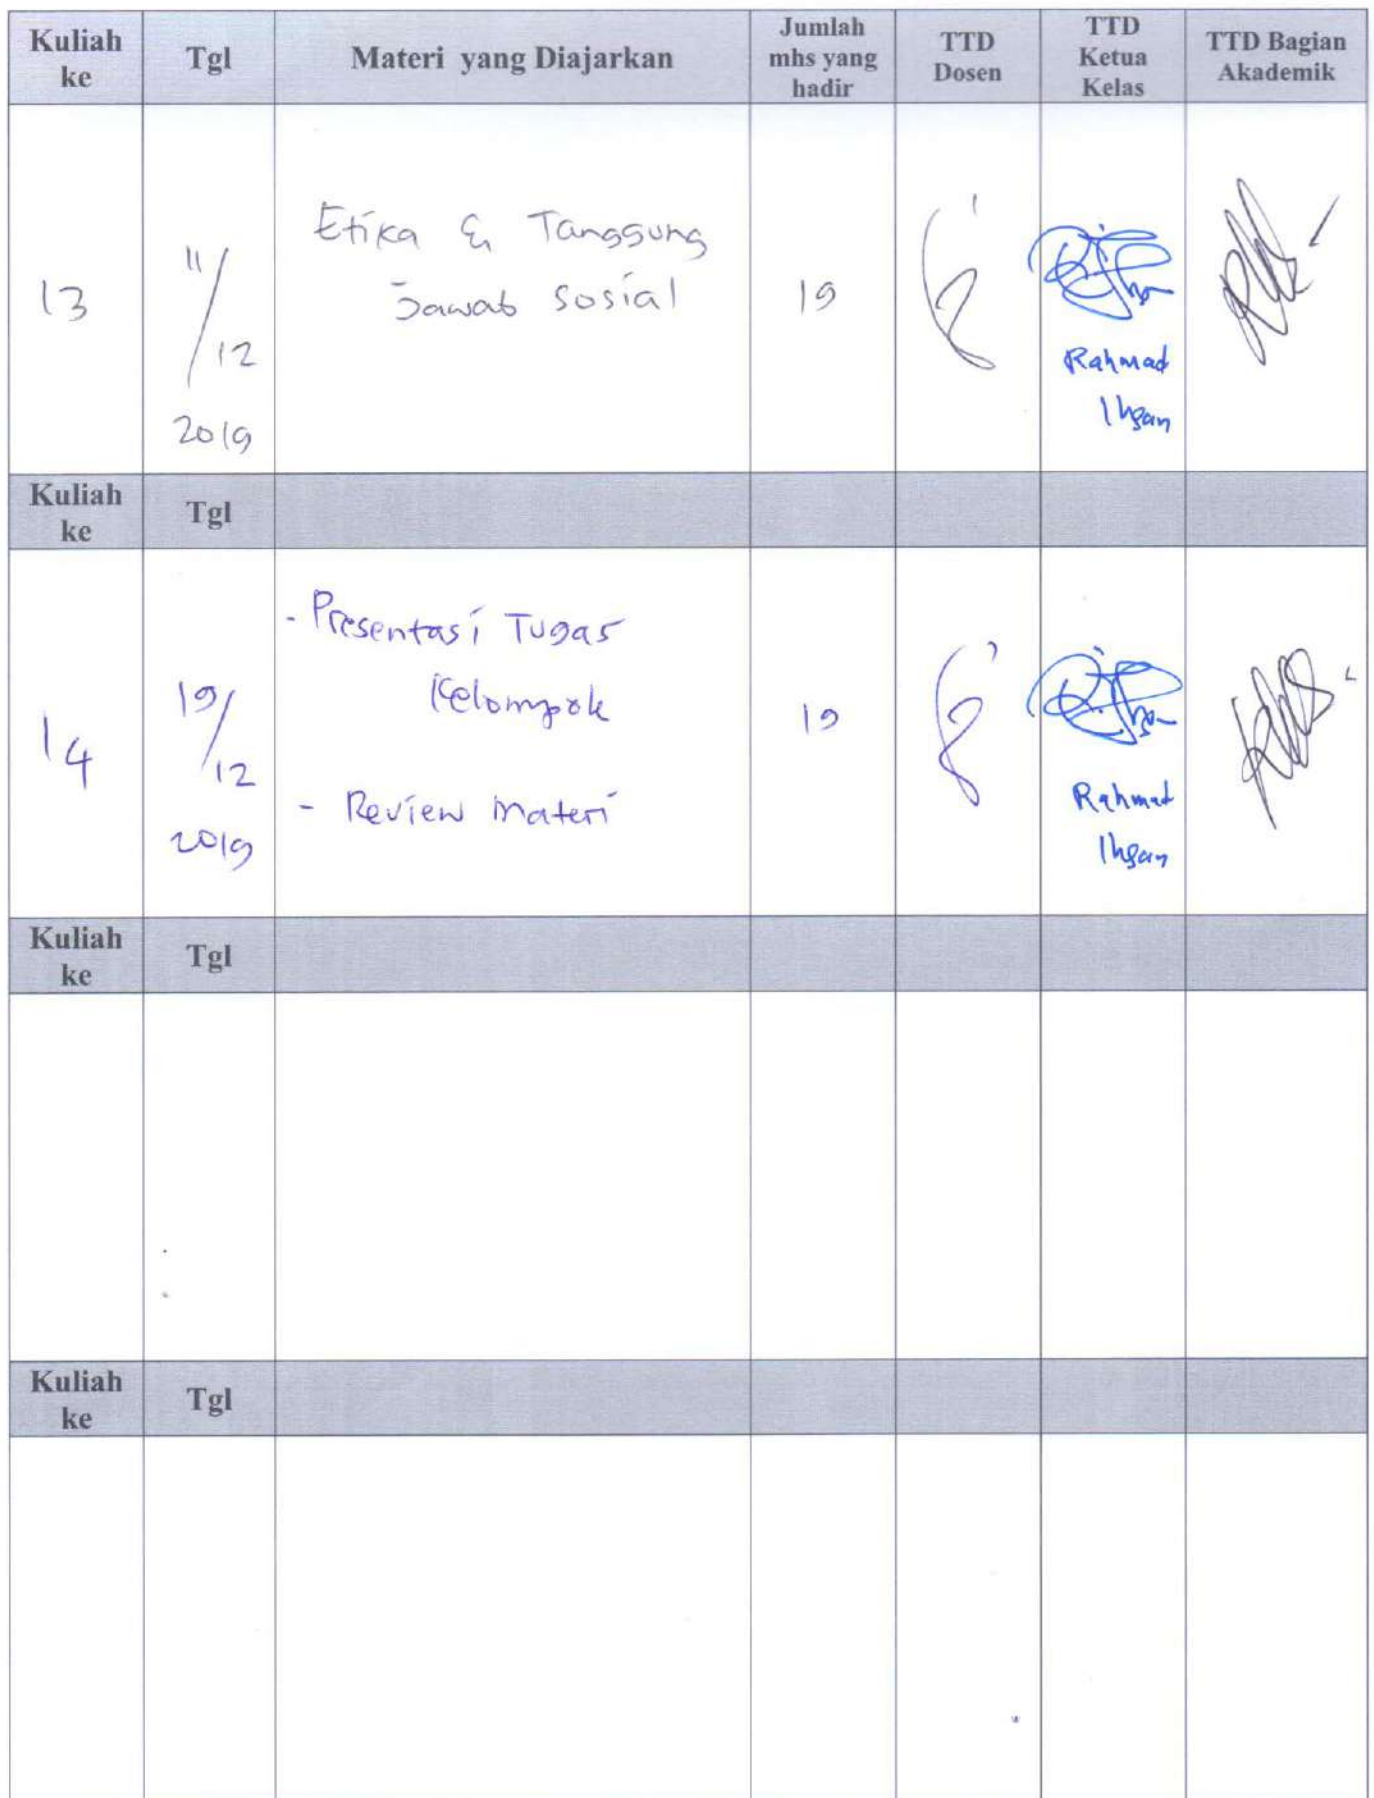 Kuliah ke
Tgl
Materi yang Diajarkan
Jumlah mhs yang hadir
TTD Dosen
TTD Ketua Kelas
TTD Bagian Akademik
13
11/12
2019
Etika & Tanggung
Jawab Sosial
19
Rahmad
Ihsan
Kuliah ke
Tgl
14
19/12
2019
- Presentasi Tugas
Kelompok
- Review Materi
19
Rahmad
Ihsan
Kuliah ke
Tgl
Kuliah ke
Tgl